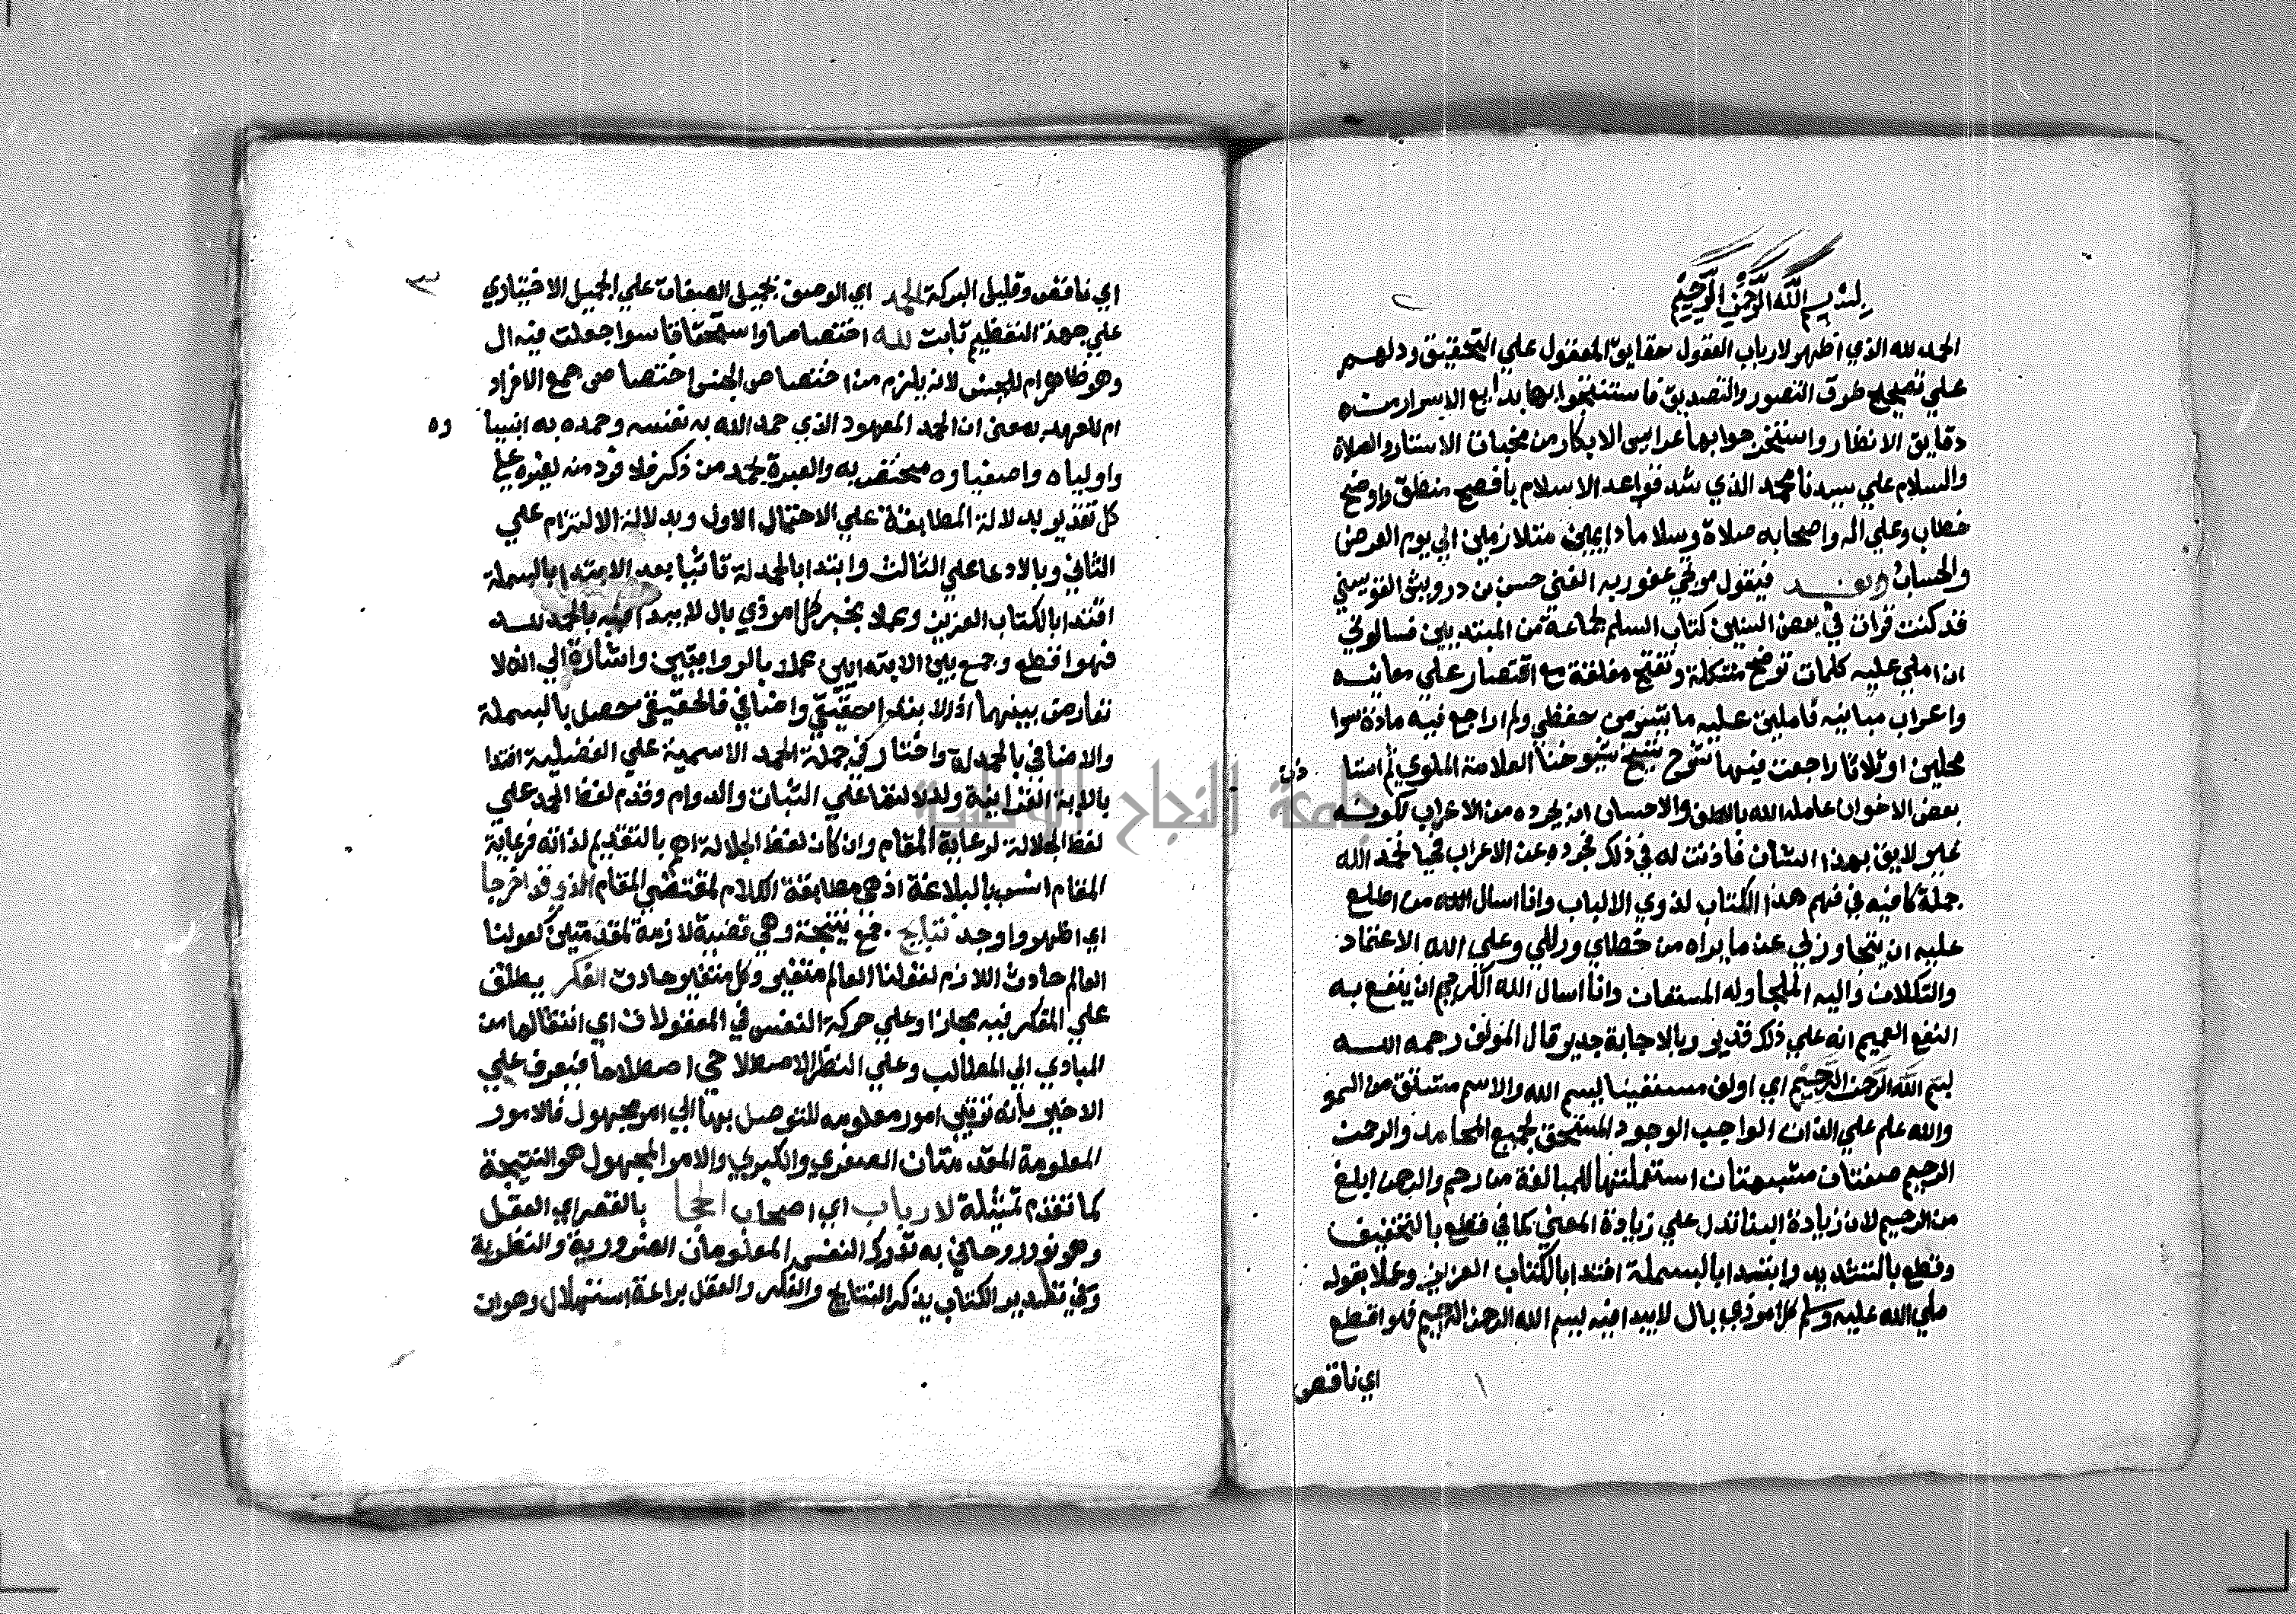 بسم الله الرحمن الرحيم
الحمد لله الذي اظهر لارباب العقول حقايق المعقول علي التحقيق ودلهم
علي تصحيح طرق التصور والتصديق فاستنتجوا بها بدايع الاسرار من
دقايق الانظار واستخرجوا بها عرايس الابكار من مخبات الاستار والصلاة
والسلام علي سيدنا محمد الذي شد قواعد الاسلام بافصح منطق واوضح
خطاب وعلي اله واصحابه صلاة وسلاما دايمين متلازمين الي يوم العرض
والحساب وبعد فيقول مرتجي عفو ربه الغني حسن بن درويش القويسني
قد كنت قرات في بعض السنين كتاب السلم لجماعة من المبتديين فسالوني
ان املي عليه كلمات توضح مشكله وتفتح مغلقه مع اقتصار علي معانيه
واعراب مبانيه فامليت عليه ما تيسر من حفظي ولم اراجع فيه مادة سوا
محلين او ثلاثا راجعت فيها شرح شيخ شيوخنا العلامة الملوي ثم استا
ذن
بعض الاخوان عامله الله باللطف والاحسان ان يجرده من الاعراب لكونه
غير لايق بهذا الشان فاذنت له في ذلك فجرده عن الاعراب فجا بحمد الله
جملة كافيه في فهم هذا الكتاب لذوي الالباب وانا اسال الله من اطلع
عليه ان يتجاوز لي عند ما يراه من خطاي وزللي وعلي الله الاعتماد
والتكلان واليه الملجا وله المستعان وانا اسال الله الكريم ان ينفع به
النفع العميم انه علي ذلك قدير وبالاجابة جدير قال المولف رحمه الله
بسم الله الرحمن الرحيم اي اولف مستعينا ببسم الله والاسم مشتق من السمو
والله علم علي الذات الواجب الوجود المستحق لجميع المحامد والرحمن
الرحيم صفتان مشبهتان استعملتها للمبالغة من رحم والرحمن ابلغ
من الرحيم لان زيادة البنا تدل علي زيادة المعني كما في قطع بالتخفيف
وقطع بالتشديد وابتدا بالبسملة اقتدا بالكتاب العزيز وعملا بقوله
صلي الله عليه وسلم كل امر ذي بال لا يبدا فيه ببسم الله الرحمن الرحيم فهو اقطع
اي ناقص
اي ناقص وقليل البركة الحمد اي الوصف بجميل الصفات علي الجميل الاختياري
علي جهة التعظيم ثابت لله اختصاصا واستحقاقا سوا جعلت فيه ال
وهو ظاهر ام للجنس لانه يلزم من اختصاص الجنس اختصاص جمع الافراد
ام للعهد بمعني ان الحمد المعهود الذي حمد الله به نفسه وحمده به انبيا
وه
واولياه واصفياوه مختص به والعبرة بحمد من ذكر فلا فرد منه لغيره علي
كل تقدير بدلالة المطابقة علي الاحتمال الاول وبدلالة الالتزام علي
الثاني وبالادعا علي الثالث وابتدا بالحمدلة ثانيا بعد الابتدا بالبسملة
اقتدا بالكتاب العزيز وعملا بخبر كل امر ذي بال لا يبدا فيه بالحمد لله
فهو اقطع وجمع بين الابتدايين عملا بالروايتين واشارة الي انه لا
تعارض بينهما اذ الابتدا حقيقي واضافي فالحقيقي حصل بالبسملة
والاضافي بالحمدلة واختار في جملة الحمد الاسمية علي الفعلية اقتدا
بالاية القرانية ولدلالتها علي الثبات والدوام وقدم لفظ الحمد علي
لفظ الجلالة لرعاية المقام وان كان لفظ الجلالة اهم بالتقديم لذاته فرعاية
المقام انسب بالبلاغة اذ هي مطابقة الكلام لمقتضي المقام الذي قد اخرجا
اي اظهر واوجد نتايج جمع نتيجة وهي قضية لازمة لمقدمتين كقولنا
العالم حادث اللازم لقولنا العالم متغير وكل متغير حادث الفكر يطلق
علي المفكر فيه مجازا وعلي حركة النفس في المعقولات اي انتقالها من
المبادي الي المطالب وعلي النظر الاصطلاحي اصطلاحا فيعرف علي
الاخير بانه ترتيب امور معلومه للتوصل بها الي امر مجهول فالامور
المعلومة المقدمتان الصغري والكبري والامر المجهول هو النتيجة
كما تقدم تمثيله لارباب اي اصحاب الحجا بالقصر اي العقل
وهو نور روحاني به تدرك النفس المعلومات الضرورية والنظرية
وفي تصدير الكتاب بذكر النتايج والفكر والعقل براعة استهلال وهو ان
جامعة النجاح الوطنية